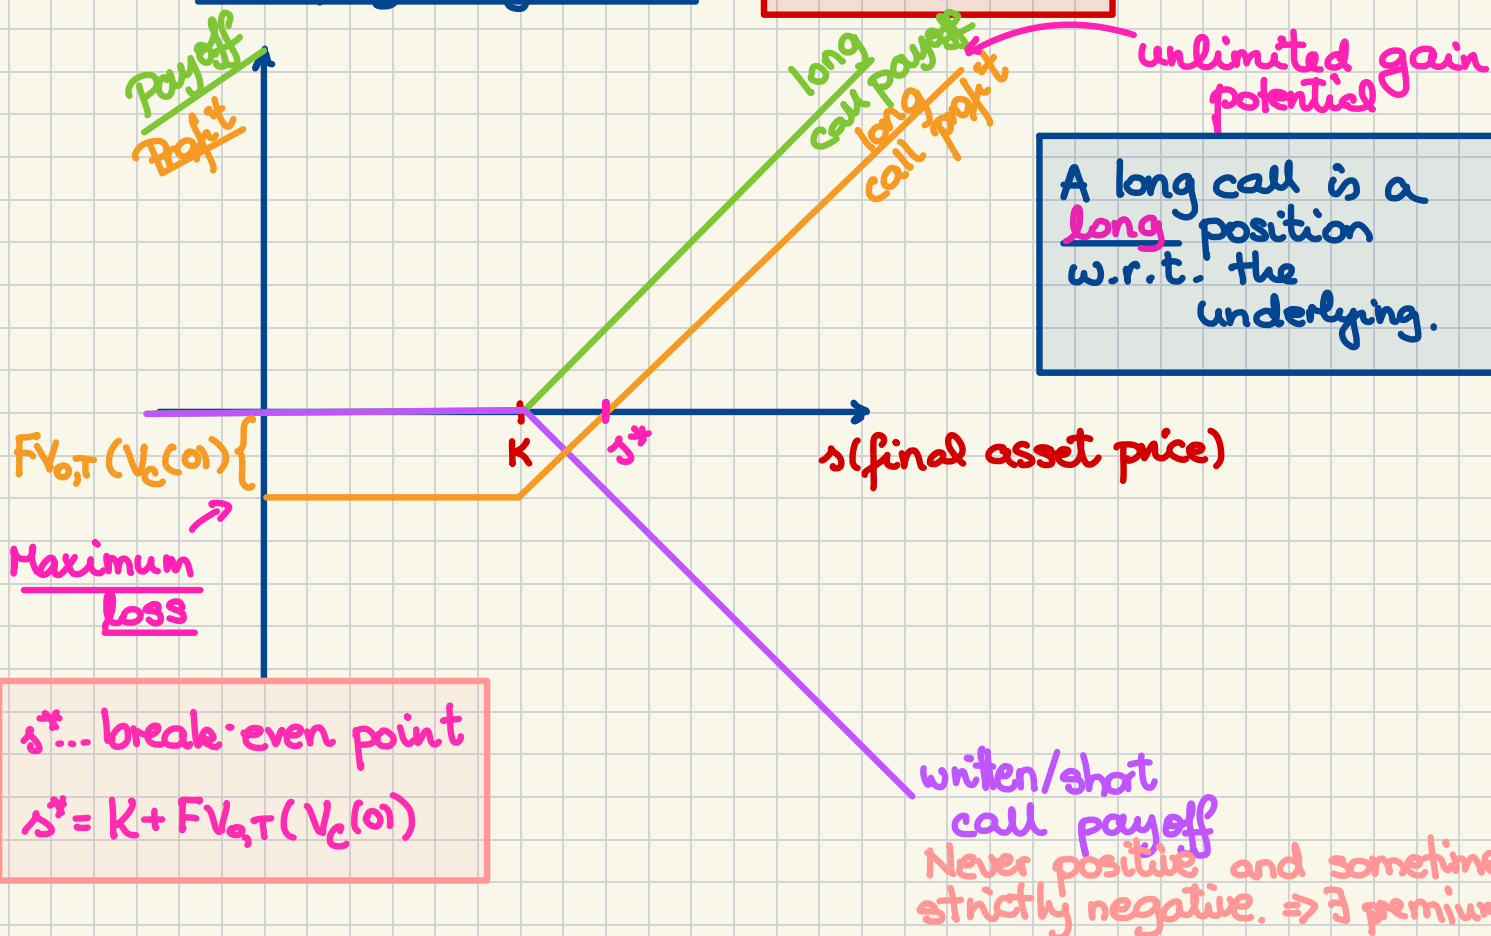 Payoff
Profit
long
call payoff
long
call profit
unlimited gain
potential
A long call is a
long position
w.r.t. the
underlying.
FV0,T(VC(0)){
K
s*
s(final asset price)
Maximum
loss
s*... break-even point
s* = K + FV0,T(VC(0))
written/short
call payoff
Never positive and sometime
strictly negative. => ∃ premium